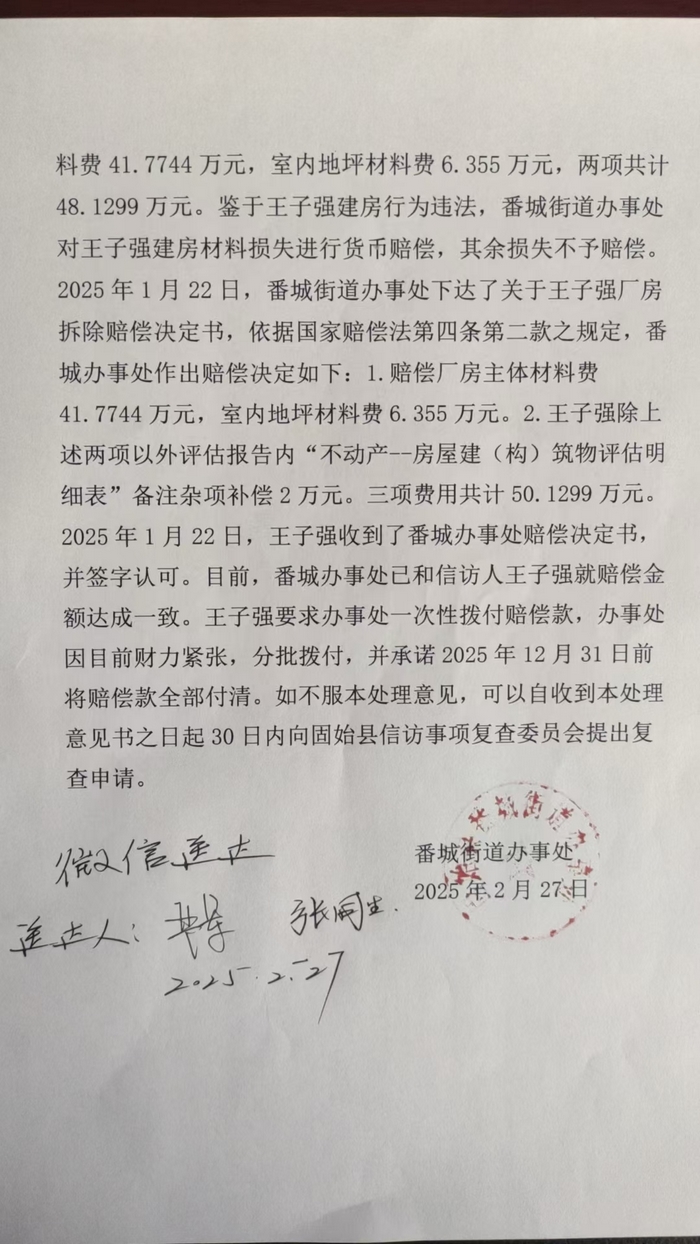 料费 41.7744 万元，室内地坪材料费 6.355 万元，两项共计
48.1299 万元。鉴于王子强建房行为违法，番城街道办事处
对王子强建房材料损失进行货币赔偿，其余损失不予赔偿。
2025 年 1 月 22 日，番城街道办事处下达了关于王子强厂房
拆除赔偿决定书，依据国家赔偿法第四条第二款之规定，番
城办事处作出赔偿决定如下：1.赔偿厂房主体材料费
41.7744 万元，室内地坪材料费 6.355 万元。2.王子强除上
述两项以外评估报告内“不动产--房屋建（构）筑物评估明
细表”备注杂项补偿 2 万元。三项费用共计 50.1299 万元。
2025 年 1 月 22 日，王子强收到了番城办事处赔偿决定书，
并签字认可。目前，番城办事处已和信访人王子强就赔偿金
额达成一致。王子强要求办事处一次性拨付赔偿款，办事处
因目前财力紧张，分批拨付，并承诺 2025 年 12 月 31 日前
将赔偿款全部付清。如不服本处理意见，可以自收到本处理
意见书之日起 30 日内向固始县信访事项复查委员会提出复
查申请。
番城街道办事处
2025 年 2 月 27 日
微信送达
送达人： 张国生.
2025.2.27